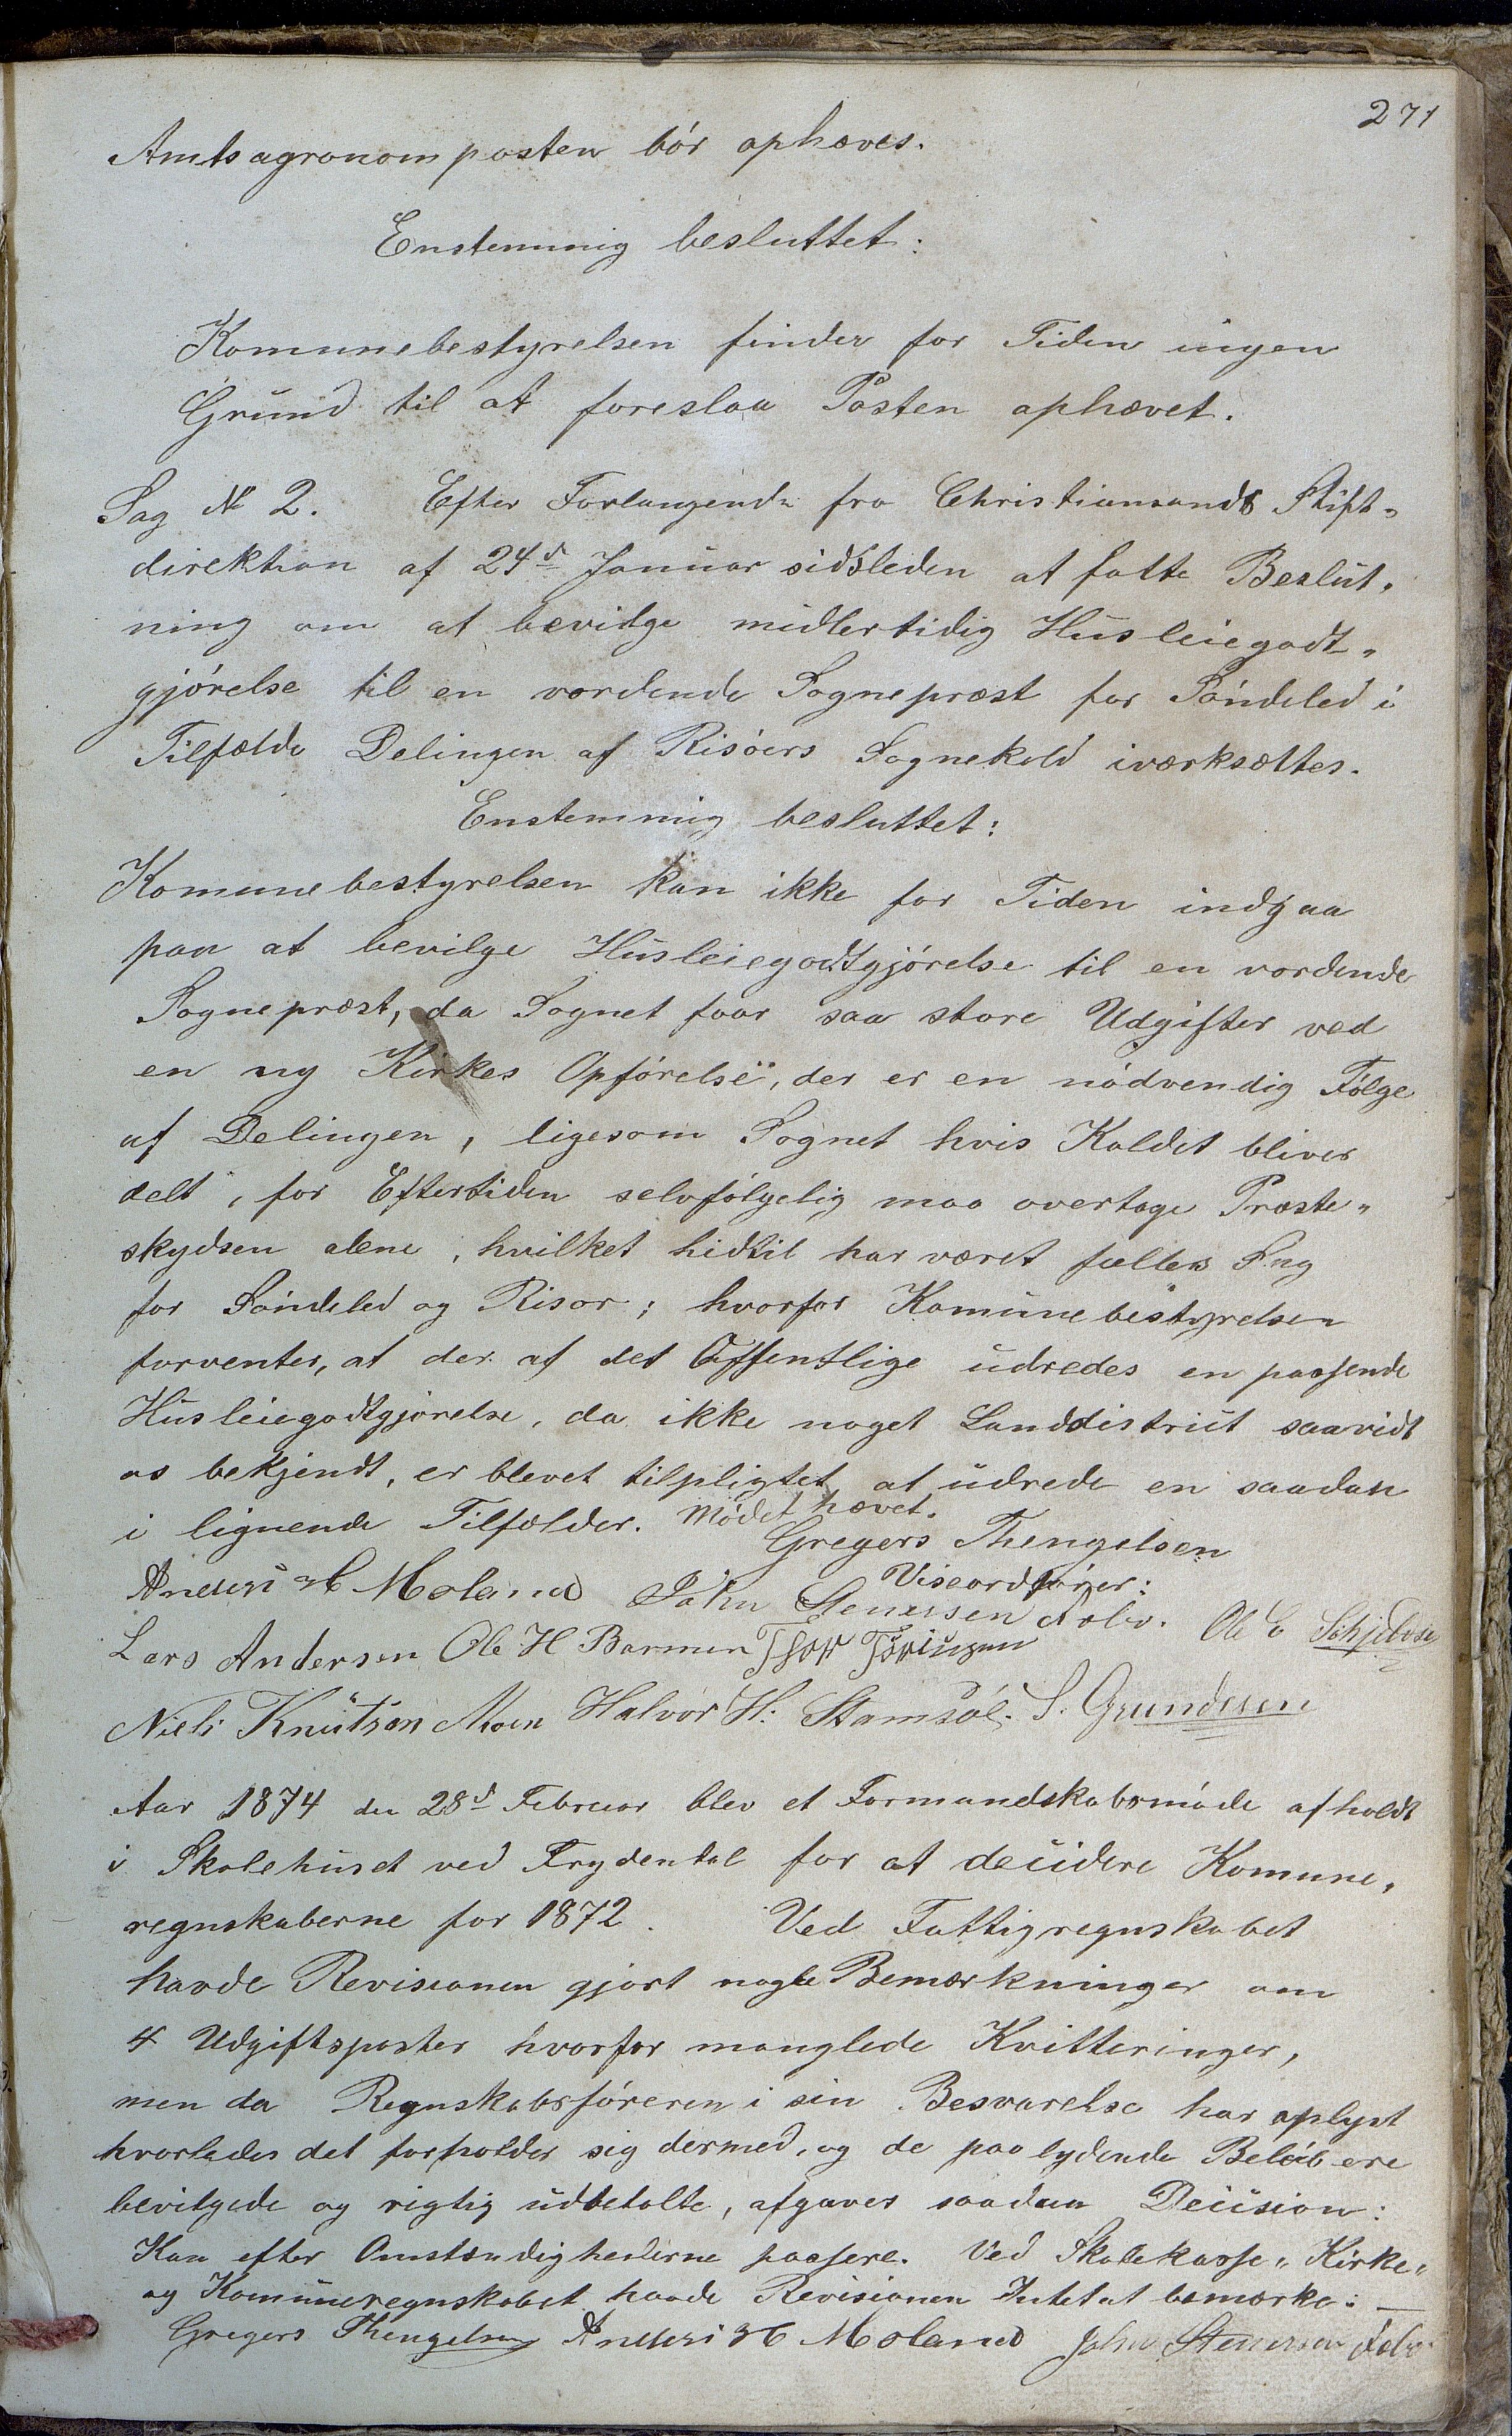 271
Amtsagronomposten bør ophæves.
Enstemmig besluttet:
Komunebestyrelsen finder for Tiden ingen
Grund til at foreslaa Posten ophævet.
Sag № 2. Efter Forlangende fra Christiansands Stift-
direktion af 24d Januar sidsleden at fatte Beslut-
ning om at bevilge midlertidig Husleiegodt-
gjørelse til en vordende Sognepræst for Søndeled i
Tilfælde Delingen af Risøers Sognekald iværksættes.
Enstemmig besluttet:
Komunebestyrelsen kan ikke for Tiden indgaa
paa at bevilge Husleiegodtgjørelse til en vordende
Sognepræst, da Sognet faar saa store Udgifter ved
en ny Kirkes Opførelse, der er en nødvendig Følge
af Delingen, ligesom Sognet hvis Kaldet bliver
delt, for Eftertiden selvfølgelig maa overtage Præste-
skydsen alene, hvilket hidtil har været fælles Sag
for Søndeled og Risør; hvorfor Komunebestyrelsen
forventer, at der af det Offentlige udredes en passende
Husleiegodtgjørelse, da ikke noget Landdistrict saavidt
os bekjendt, er blevet tilpligtet at udrede en saadan
i lignende Tilfælder. Mødet hævet.
Gregers Thengelsen
Viseordfører:
Anders H Moland John Stenersen Folv. Ole E Schjelvsi
Lars Andersen Ole H Barmen Thor
Niels Knutson Moen Halvor H. Stamsøl. S. Grundesen
Aar 1874 den 28d Februar blev et Formandskabsmøde afholdt
i Skolehuset ved Frydendal for at decidere Komune-
regnskaberne for 1872. Ved Fattigregnskabet
havde Revisionen gjort nogle Bemærkninger om
4 Udgiftsposter hvorfor manglede Kvitteringer,
men da Regnskabsføreren i sin Besvarelse har oplyst
hvorledes det forholder sig dermed, og de paalydende Beløb ere
bevilgede og rigtig udbetalte, afgaves saadan Decision:
Kan efter Omstændighederne passere. Ved Skolekasse- Kirke-
og Komuneregnskabet havde Revisionen Intet at bemærke: —
Gregers Thengelsen Anders H Moland John Stenersen Folv.